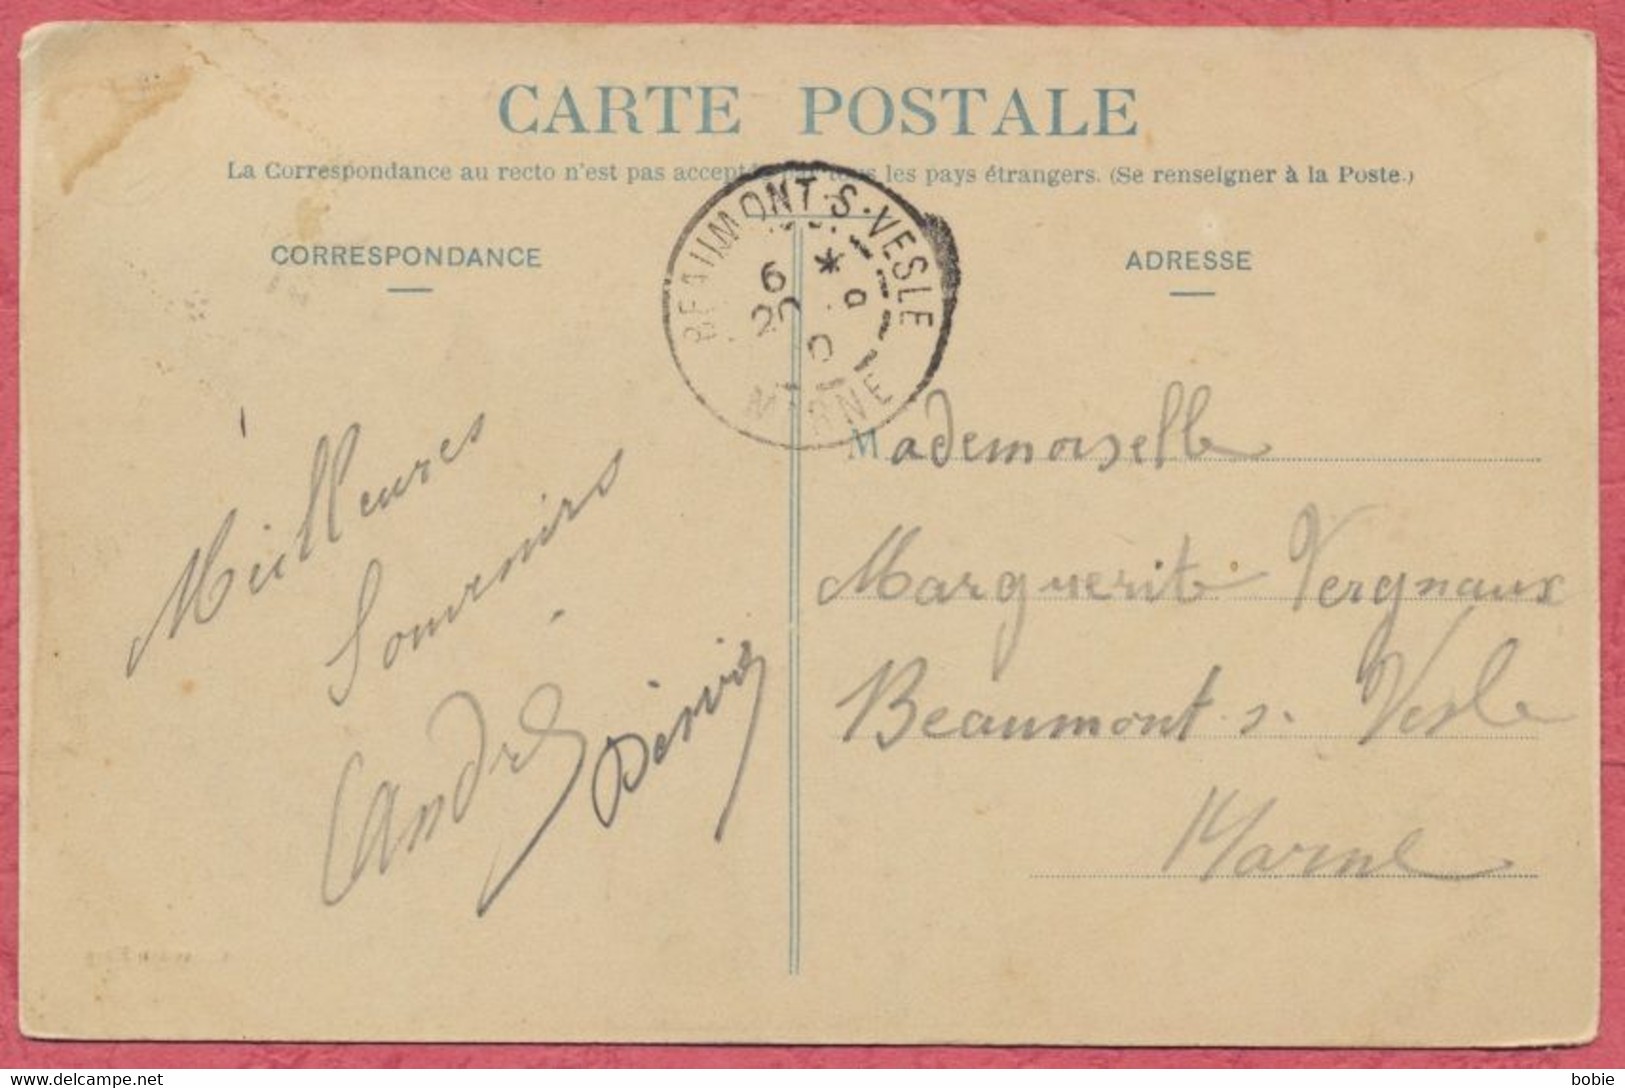 CARTE POSTALE
La Correspondance au recto n'est pas acceptée par tous les pays étrangers. (Se renseigner à la Poste.)
CORRESPONDANCE
ADRESSE
BEAUMONT-S-VESLE
6 *
20
MARNE
Meilleures
Souvenirs
André
Mademoiselle
Marguerite Vergnaux
Beaumont s. Vesle
Marne
delcampe.net
bobie